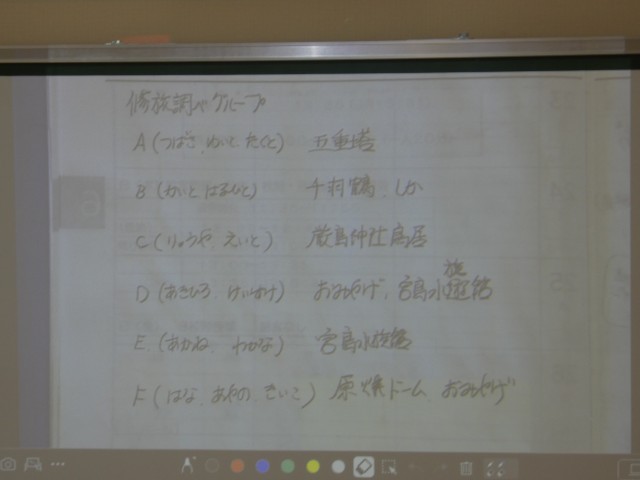 修旅調べグループ
A(つばさ、めいと たくと) 五重塔
B(かいと はるひと) 千羽鶴、しか
C(りょうや、えいと) 厳島神社鳥居
D(あきひろ、けいすけ) おみやげ、宮島水族館
E(あかね、わかな) 宮島水族館
F(はな、あやの、きいこ) 原爆ドーム、おみやげ